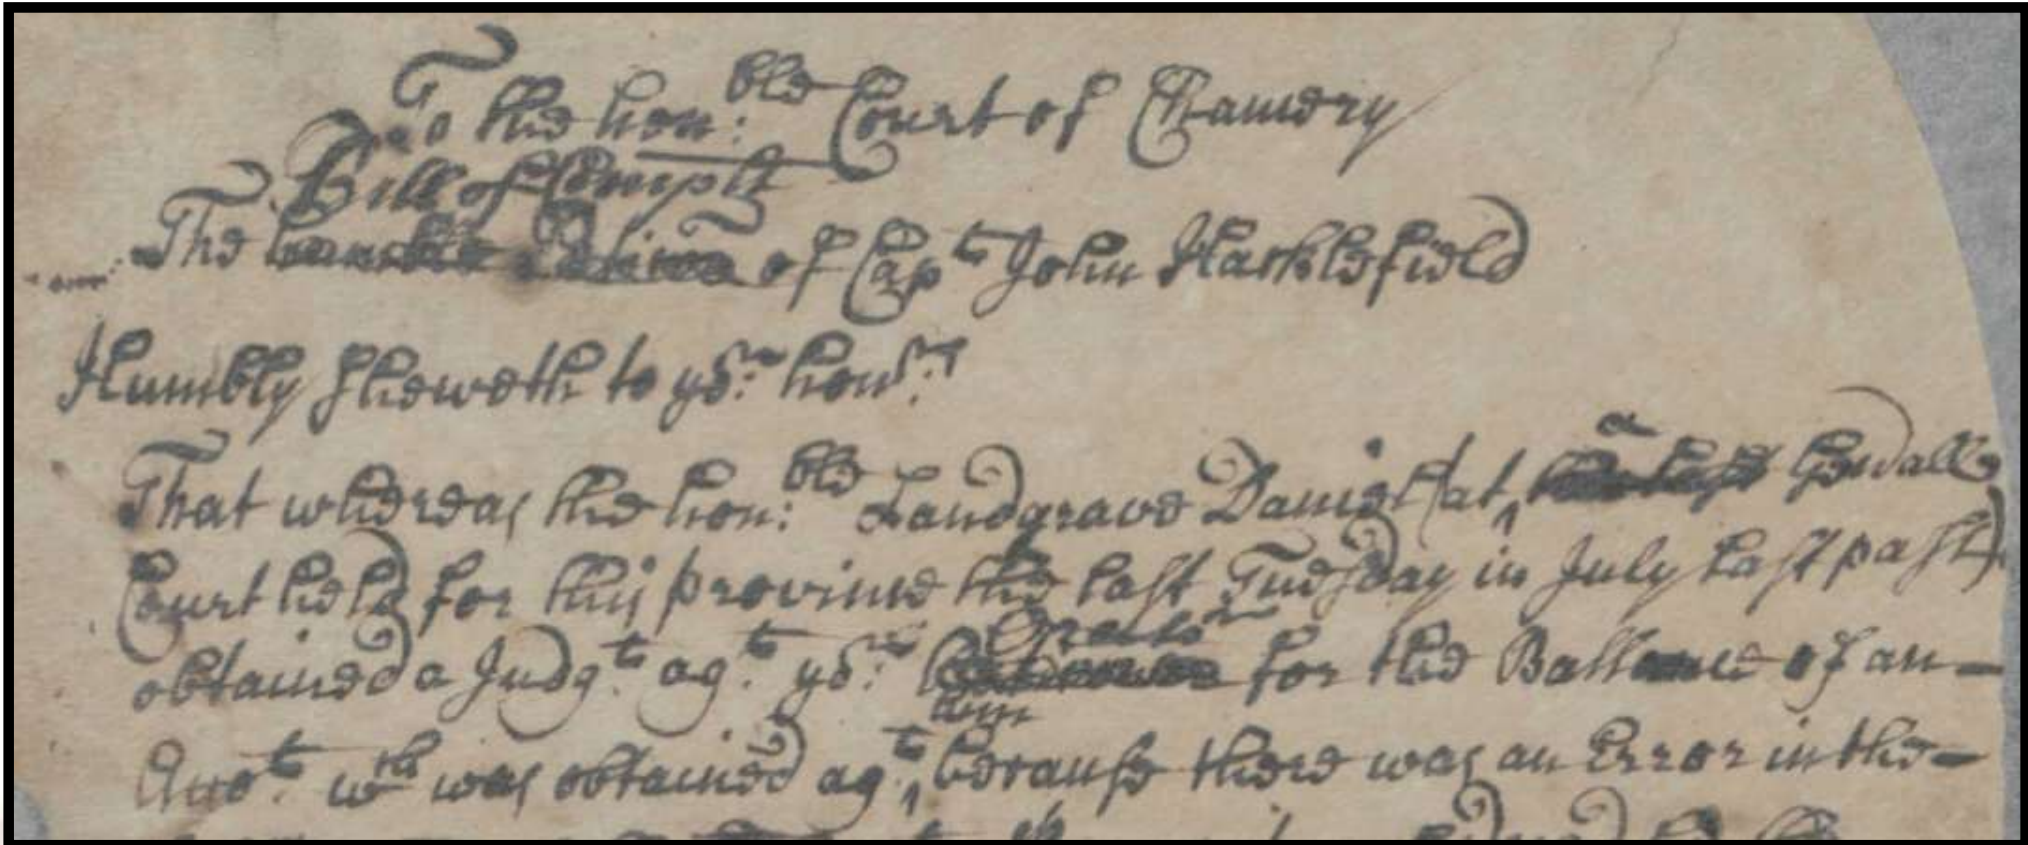 To the hon:ble Court of Chancery
Bill of Complt
The humble Petition of Capt John Hacklefield
Humbly Sheweth to yor: honrs:
That whereas the hon:ble Landgrave Daniel (at a Genall
Court held for this province the last Tuesday in July last past)
obtained a Judgt: agt: yor: Orator for the Ballance of an
him
Accot: wch was obtained agt: because there was an Error in the